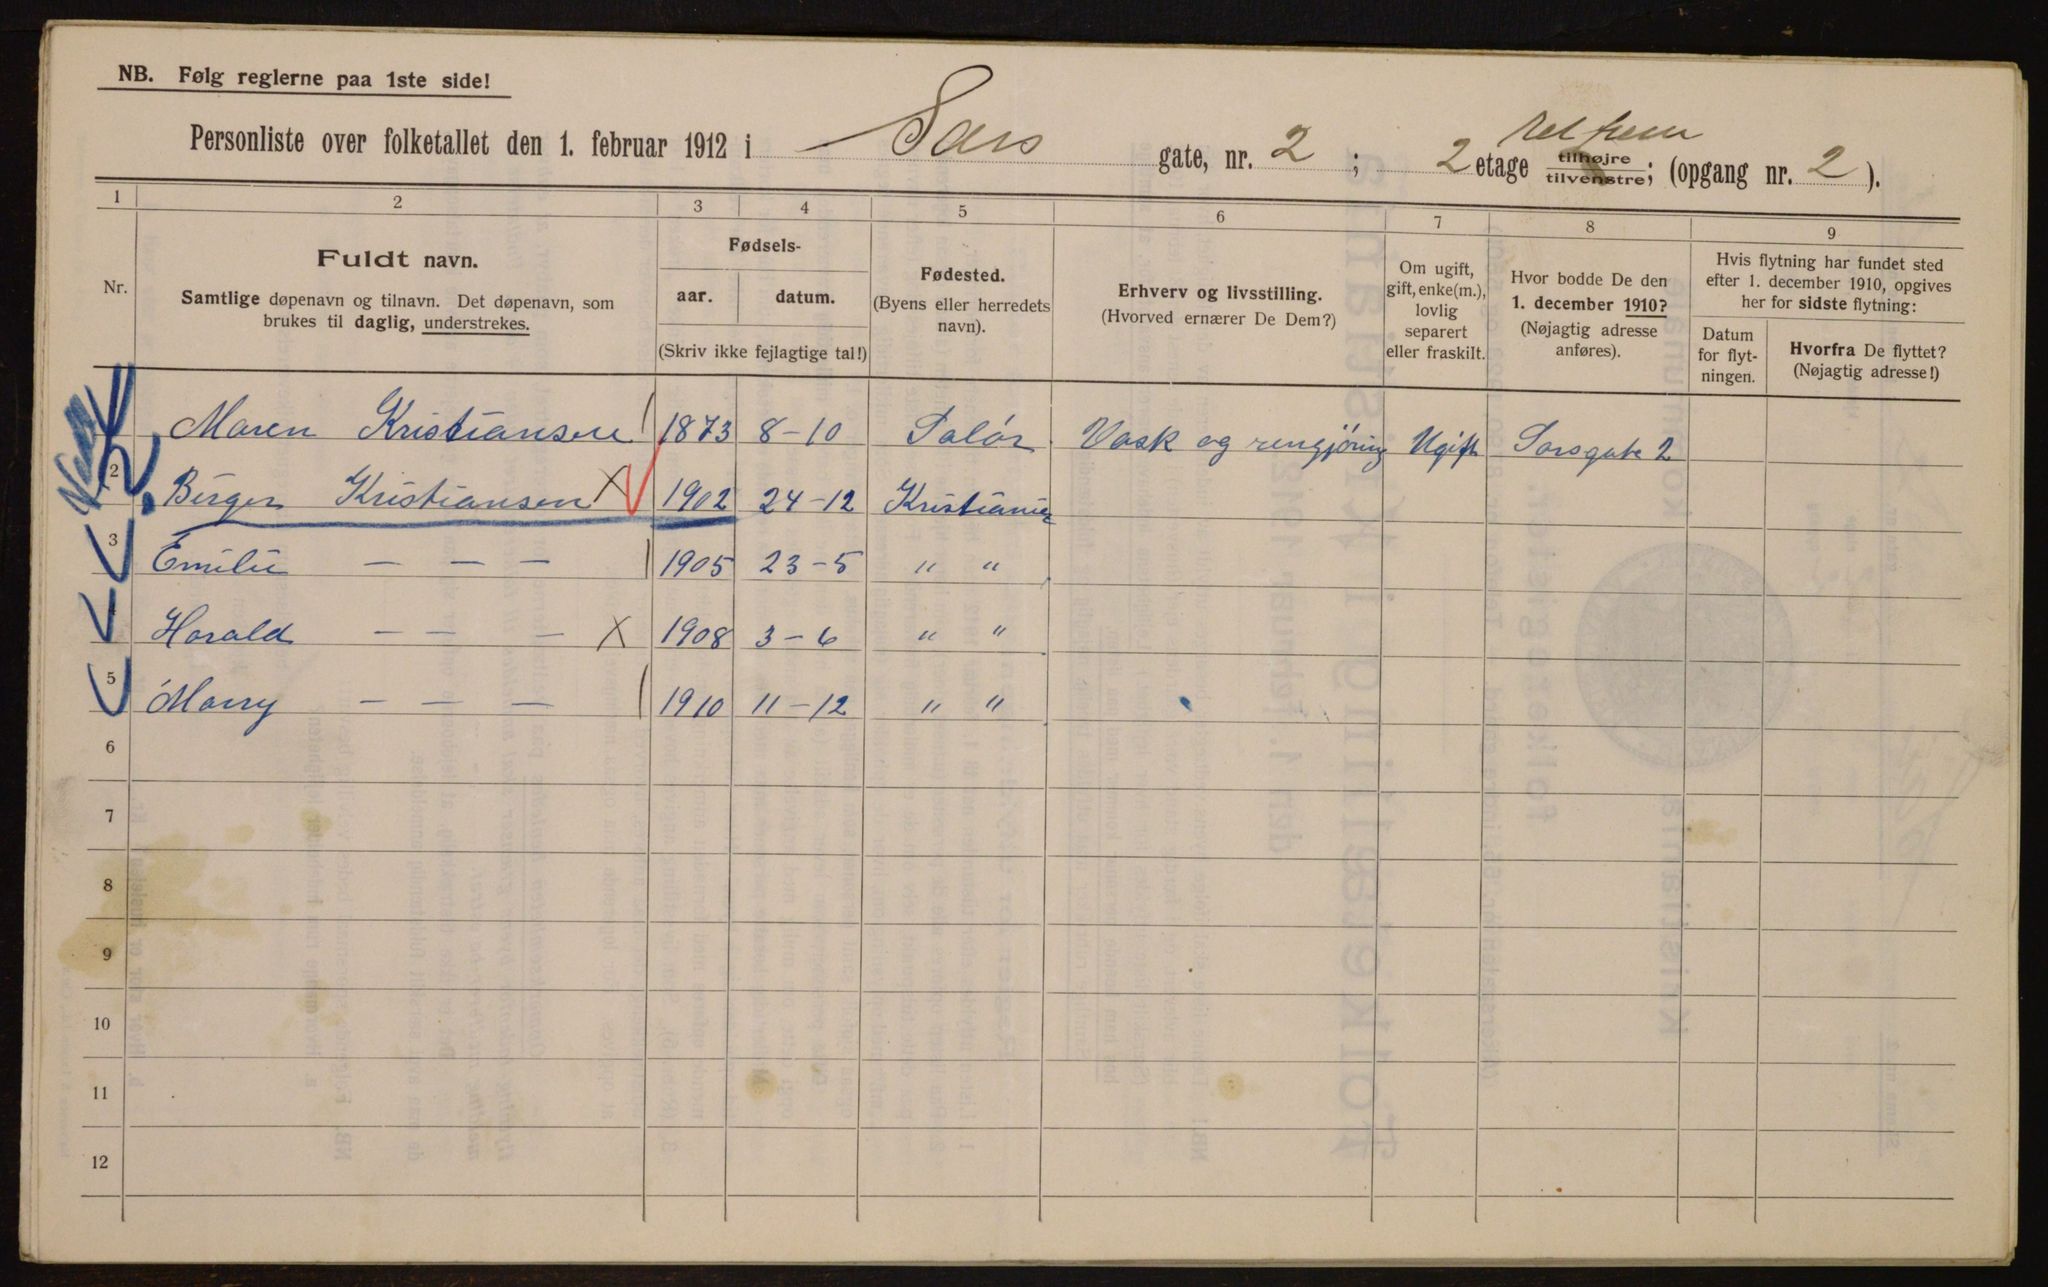 NB. Følg reglerne paa 1ste side!
Personliste over folketallet den 1. februar 1912 i Sars gate, nr. 2 ; 2 etage ret frem tilhøjre tilvenstre; (opgang nr. 2 ).
1 2 3 4 5 6 7 8 9
Nr.
Fuldt navn.
Samtlige døpenavn og tilnavn. Det døpenavn, som
brukes til daglig, understrekes.
Fødsels-
aar. datum.
(Skriv ikke fejlagtige tal!)
Fødested.
(Byens eller herredets
navn).
Erhverv og livsstilling.
(Hvorved ernærer De Dem?)
Om ugift,
gift, enke(m.),
lovlig
separert
eller fraskilt.
Hvor bodde De den
1. december 1910?
(Nøjagtig adresse
anføres).
Hvis flytning har fundet sted
efter 1. december 1910, opgives
her for sidste flytning:
Datum
for flyt-
ningen.
Hvorfra De flyttet?
(Nøjagtig adresse!)
Maren Kristiansen 1873 8-10 Solør Vask og rengjøring Ugift Sarsgate 2
2 Birger Kristiansen X 1902 24-12 Kristiania
3 Emilie — — — 1905 23-5 " "
Harald — — — X 1908 3-6 " "
5 Marry — — — 1910 11-12 " "
6
7
8
9
10
11
12